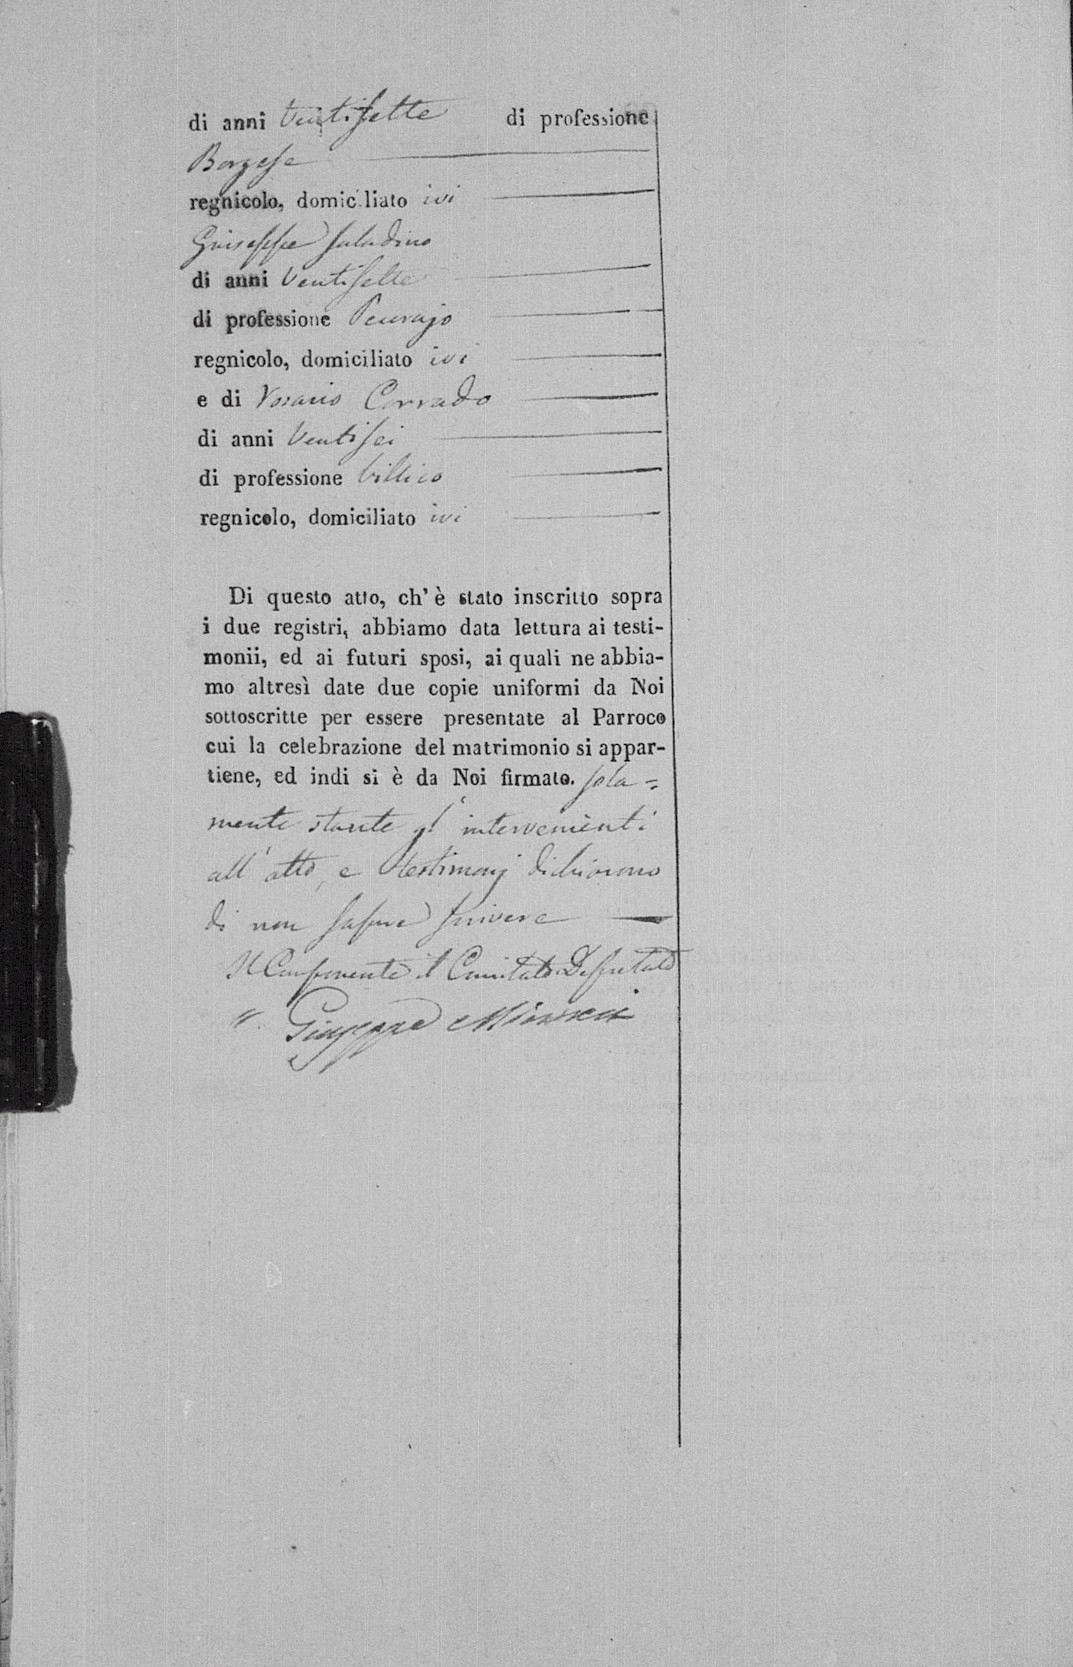 di anni Ventisette di professione
Borgese
regnicolo, domiciliato ivi
Giuseppe Saladino
di anni Ventisette
di professione Pecorajo
regnicolo, domiciliato ivi
e di Rosario Corrado
di anni Ventisei
di professione Villico
regnicolo, domiciliato ivi
Di questo atto, ch' è stato inscritto sopra
i due registri, abbiamo data lettura ai testi-
monii, ed ai futuri sposi, ai quali ne abbia-
mo altresì date due copie uniformi da Noi
sottoscritte per essere presentate al Parroco
cui la celebrazione del matrimonio si appar-
tiene, ed indi si è da Noi firmato. sola=
mente stante gl' intervenienti
all' atto, e testimonj dichiarono
di non sapere scrivere
Il Componente il Comitato Deputato
Giuseppe